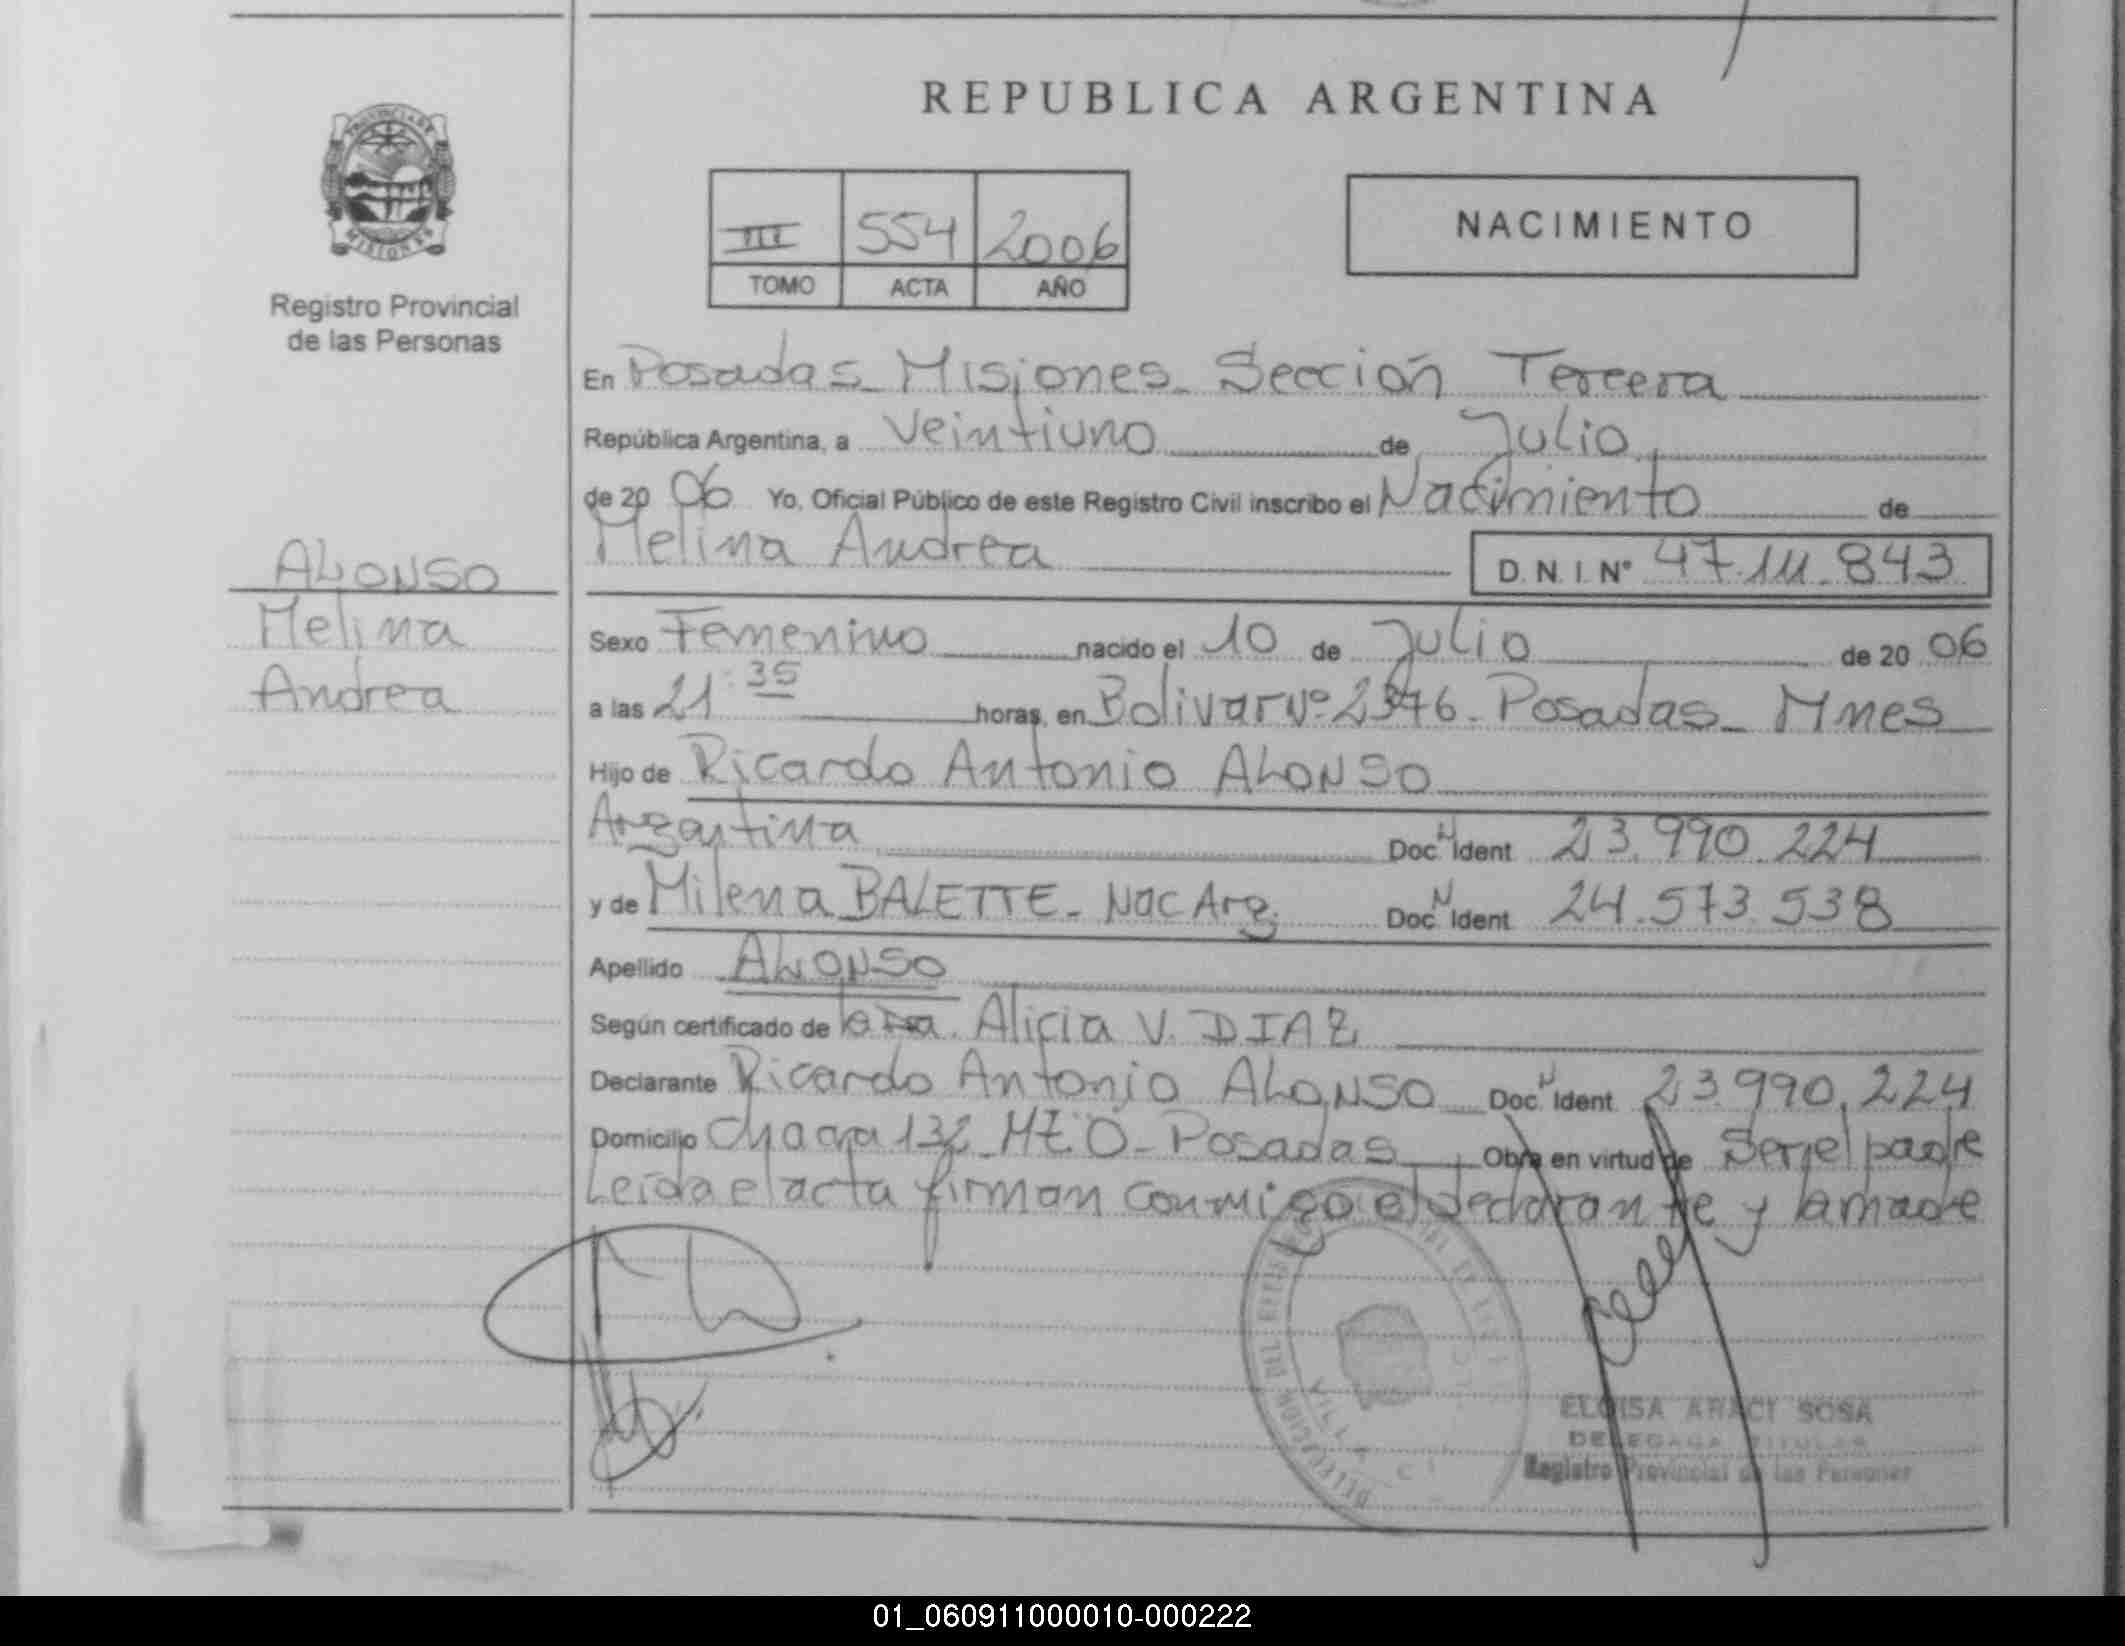 REPUBLICA ARGENTINA
PROVINCIA DE
MISIONES
Registro Provincial
de las Personas
III 554 2006
TOMO ACTA AÑO
NACIMIENTO
En Posadas Misiones Sección Tercera
República Argentina, a Veintiuno de Julio
de 2006 Yo, Oficial Público de este Registro Civil inscribo el Nacimiento de
Melina Andrea
D.N.I. Nº 47.111.843
ALONSO
Melina
Andrea
Sexo Femenino nacido el 10 de Julio de 2006
a las 21:35 horas, en Bolivar Nº 2376 - Posadas - Mnes
Hijo de Ricardo Antonio ALONSO
Argentina Doc N Ident 23.990.224
y de Milena BALETTE - Nac Arg. Doc N Ident 24.573.538
Apellido ALONSO
Según certificado de la Dra. Alicia V. DIAZ
Declarante Ricardo Antonio ALONSO Doc N Ident 23.990.224
Domicilio Chacra 132 Posadas Obra en virtud de Ser el padre
Leída el acta firman conmigo el declarante y la madre
DELEGACION DEL
VILLA
ELOISA ARACI SOSA
DELEGADA TITULAR
Registro Provincial de las Personas
01_060911000010-000222